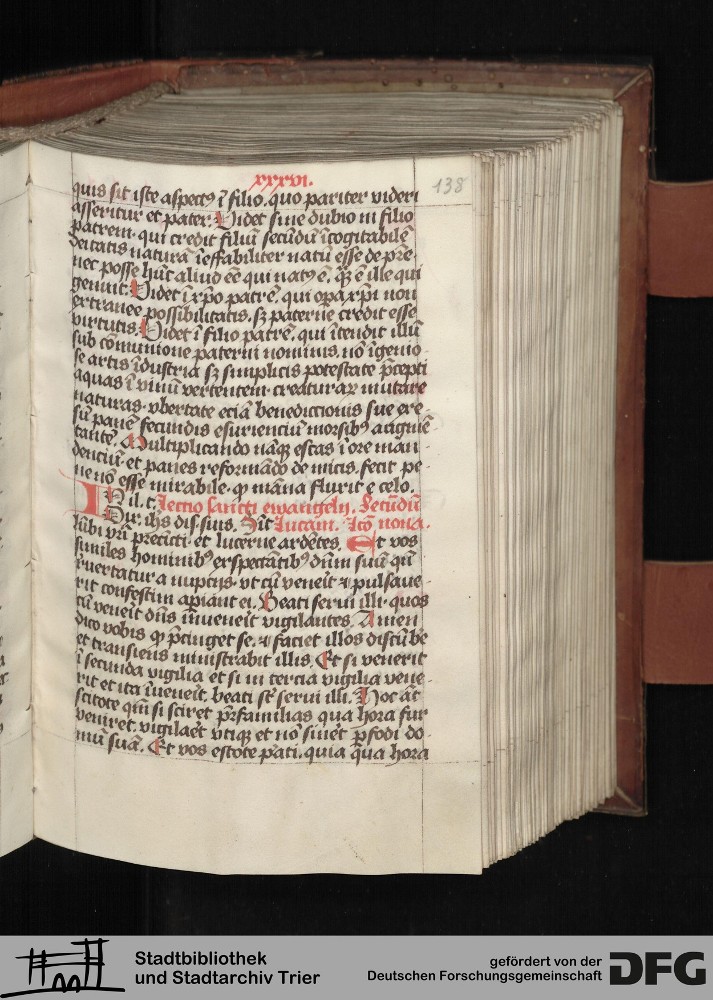 xxxvi.
138
quis sit iste aspectꝰ ī filio. quo pariter videri
asseritur et pater. Videt sine dubio in filio
patrem. qui credit filiū secūdū īcogitabilē
deitatis naturā ieffabiliter natū esse de pr̄e
nec posse hūc aliud eē qui natꝰ ē. qͣ ē ille qui
genuit. Videt ī xp̄o patrē. qui oꝑa xp̄i non
extranee possibilitatis. sꝫ paterne credit esse
virtutis. Videt ī filio patrē. qui ītendit illū
sub cōmunione paterni nominis. nō īgenio-
se artis īdustria sꝫ simplicis potestate p̄cepti
aquas ī vinū vertentem. creaturaꝝ mutare
naturas. vbertate eciā benediccionis sue exe-
sū panē fecundis esurienciū morsibꝫ augmē-
tante. Multiplicando nāqꝫ escas ī ore man-
denciū. et panes reformādo de micis. fecit pe-
ne nō esse mirabile. qꝫ māna flurit e celo.
In il. t. Lectio sancti ewangelij. Secūdū
Dix. ih̄s dis. suis. Sīt Lucam. Lc̄o nona.
lūbi vr̄i precīcti. et lucerne ardētes. Et vos
similes hominibꝫ exspectātibꝫ dn̄m suū qn̄
reuertatur a nupcijs. vt cū veneīt ⁊ pulsaue-
rit confestim apiant ei. Beati serui illi. quos
cū veneīt dn̄s īuueneīt vigilantes. Amen
dico vobis qꝫ p̄cinget se. ⁊ faciet illos discūbe
et transiens ministrabit illis. Et si venerit
ī secunda vigilia et si in tercia vigilia vene-
rit et ita īueneīt. beati st̄ serui illi. Hoc āt
scitote qm̄ si sciret pr̄familias qua hora fur
veniret. vigilaēt vtiqꝫ et nō sineēt ꝑfodi do-
mū suā. Et vos estote pͣati. quia qͣua hora
Stadtbibliothek
und Stadtarchiv Trier
gefördert von der
Deutschen Forschungsgemeinschaft
DFG